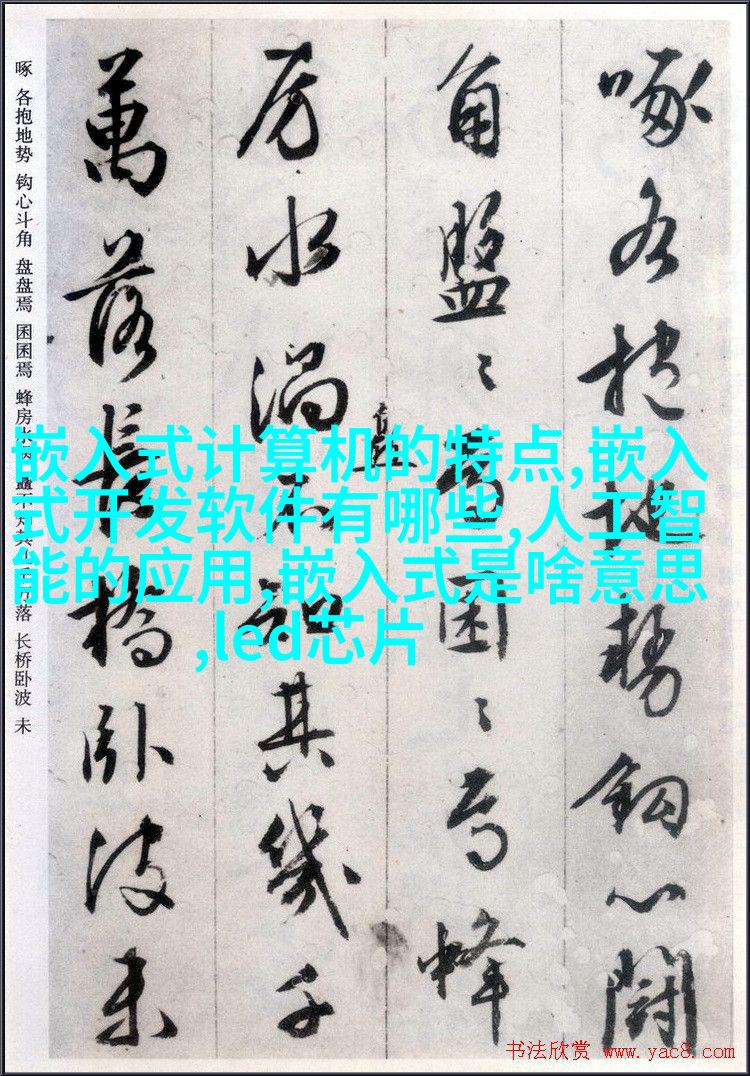 啄各抱地势鈎心闘
角盤〻焉囷〻焉蜂
房水渦矗不知其幾千
萬落長橋卧波未
啄 各抱地势 钩心斗角 盘盘焉 囷囷焉 蜂房水
落 长桥卧波 未
嵌入式计算机的特点,嵌入
式开发软件有哪些,人工智
能的应用,嵌入式是啥意思
,led芯片
书法欣赏 www.yac8.com